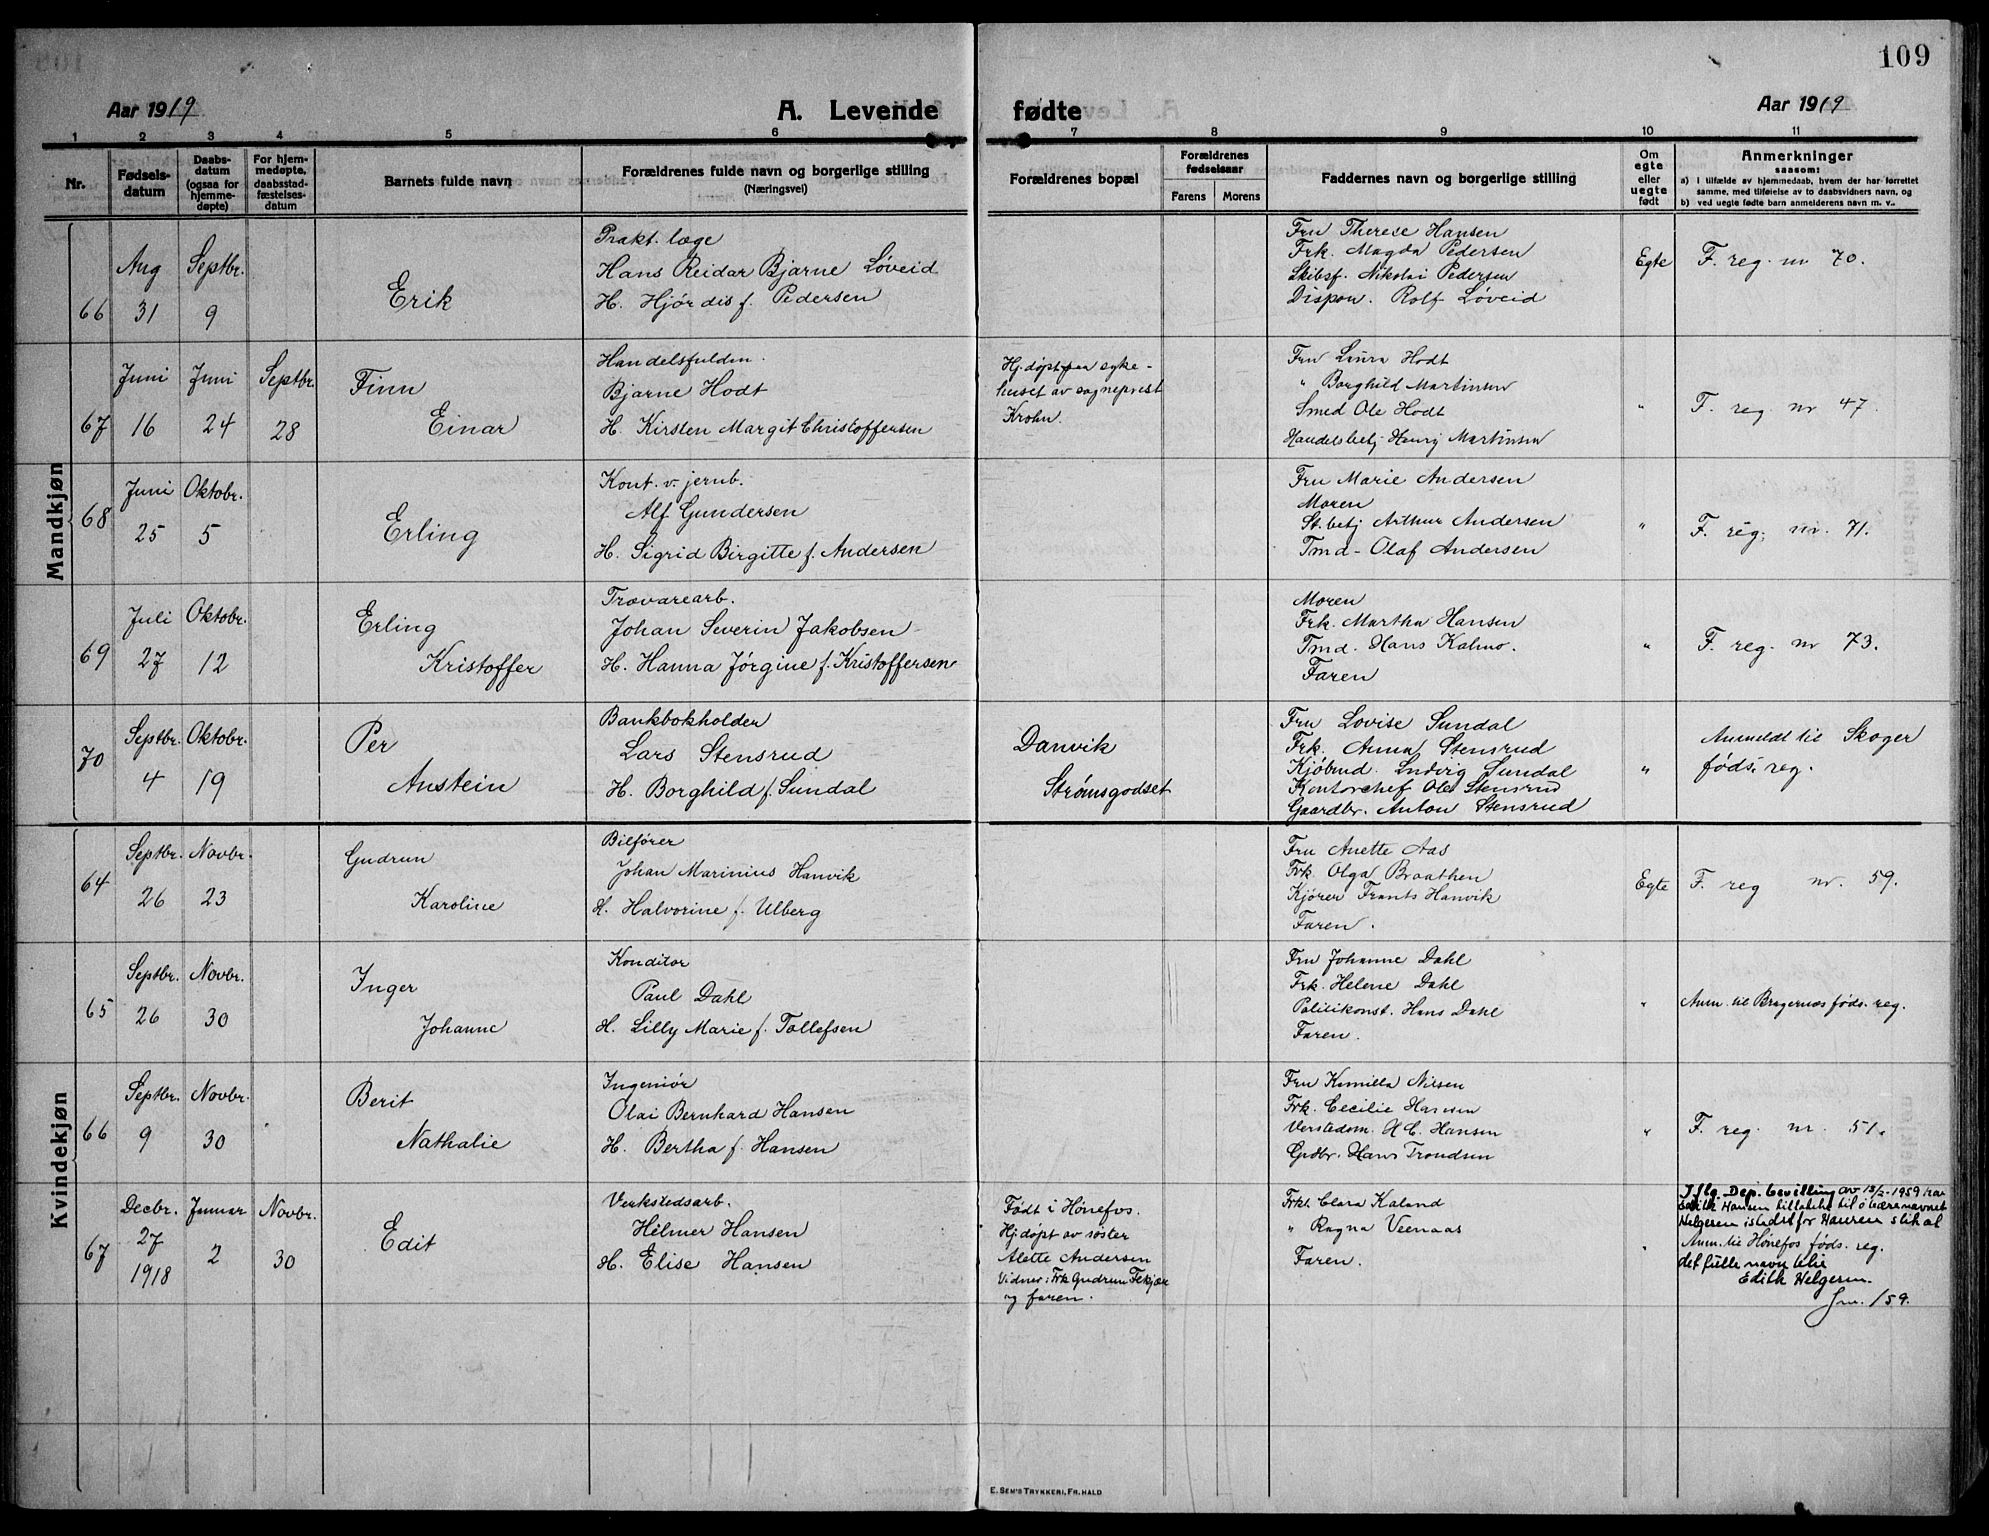 109
Aar 1919 A. Levende fødte Aar 1919
1 2 3 4 5 6 7 8 9 10 11
Nr. Fødsels-datum Daabs-datum (ogsaa for hjemme-døpte) For hjem-medøpte, daabsstad-fæstelses-datum Barnets fulde navn Forældrenes fulde navn og borgerlige stilling (Næringsvei) Forældrenes bopæl Forældrenes fødselsaar Farens Morens Faddernes navn og borgerlige stilling Om egte eller uegte født Anmerkninger saasom:
a) I tilfælde av hjemmedaab, hvem der har forrettet samme, med tilføielse av to daabsvidners navn, og
b) ved uegte fødte barn anmelderens navn m. v..
Mandkjøn
66 Aug 31 Septbr. 9 Erik
Prakt. læge
Hans Reidar Bjarne Løveid
H. Hjørdis f. Pedersen
Fru Therese Hansen
Frk. Magda Pedersen
Skibsf. Nikolai Pedersen
Dispon. Rolf Løveid
Egte F. reg. nr 70.
67 Juni 16 Juni 24 Septbr. 28 Finn Einar
Handelsfuldm.
Bjarne Hodt
H. Kirsten Margit Christoffersen
Hj.døpt paa syke-
huset av sogneprest
Krohn.
Fru Laura Hodt
" Borghild Martinsen
Smed Ole Hodt
Handelsbetj Henry Martinsen
" F. reg. nr 47.
68 Juni 25 Oktobr. 5 Erling
Kont. v. jernb.
Alf Gundersen
H. Sigrid Birgitte f. Andersen
Fru Marie Andersen
Moren
St.betj Arthur Andersen
Tmd- Olaf Andersen
" F. reg. nr. 71.
69 Juli 27 Oktobr. 12 Erling Kristoffer
Trævarearb.
Johan Severin Jakobsen
H. Hanna Jørgine f. Kristoffersen
Moren
Frk. Martha Hansen
Tmd. Hans Kalmo.
Faren
" F. reg. nr 73.
70 Septbr. 4 Oktobr. 19 Per Anstein
Bankbokholder
Lars Stensrud
H. Borghild f. Sundal
Danvik
Strømsgodset
Fru Lovise Sundal
Frk. Anna Stensrud
Kjøbmd. Ludvig Sundal
Kontorchef Ole Stensrud
Gaardbr. Anton Stensrud
" Anmeldt til Skoger
føds. reg.
Kvindekjøn
64 Septbr. 26 Novbr. 23 Gudrun Karoline
Bilfører
Johan Marinius Hanvik
H. Halvorine f. Ulberg
Fru Anette Aas
Frk. Olga Braathen
Kjører Frants Hanvik
Faren.
Egte F. reg nr. 59.
65 Septbr. 26 Novbr. 30 Inger Johanne
Konditor
Paul Dahl
H. Lilly Marie f. Tollefsen
Fru Johanne Dahl
Frk. Helene Dahl
Politikonst. Hans Dahl
Faren.
" Anm. til Bragernæs føds. reg.
66 Septbr. 9 Novbr. 30 Berit Nathalie
Ingeniør
Olai Bernhard Hansen
H. Bertha f. Hansen
Fru Kamilla Nilsen
Frk. Cecilie Hansen
H. C. Hansen
Grdbr. Hans Trondsen
" F. reg. nr. 51.
67 Decbr. 27 1918 Januar 2 Novbr. 30 Edit
Verkstedsarb.
Helmer Hansen
H. Elise Hansen
Født i Hønefos.
Hj.døpt av søster
Alette Andersen
Vidner: Frk Gudrun
og faren.
Frk. Clara Kaland
" Ragna Veenaas
Faren.
" Iflg. Dep. bevilling av 13/2-1959 har
Edith Hansen tillatelse til å bære navnet
Helgesen istedet for Hansen slik at
Anm. til Hønefos føds. reg.
det fulle navn blir
Edith Helgesen.
Jnr. /59.
E. SEM'S TRYKKERI, FR. HALD